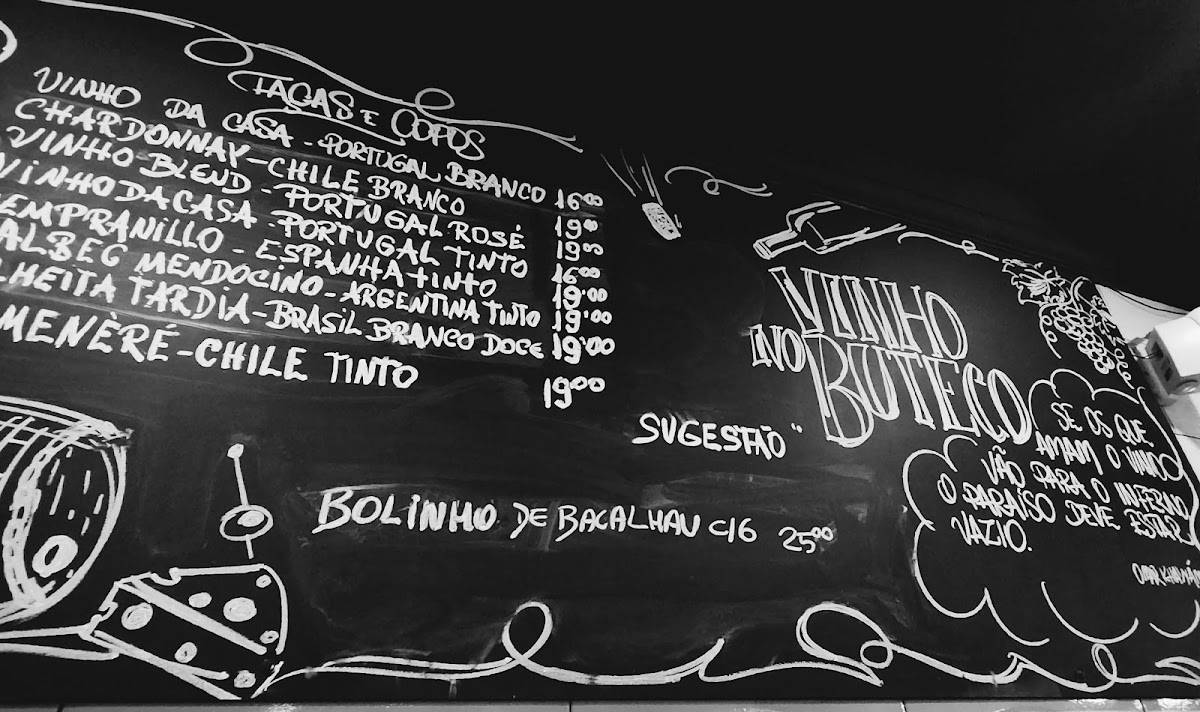 TAÇAS E COPOS
VINHO DA CASA - PORTUGAL BRANCO 1600
CHARDONNAY - CHILE BRANCO 1900
VINHO BLEND - PORTUGAL ROSÉ 1900
VINHO DA CASA - PORTUGAL TINTO 1600
EMPRANILLO - ESPANHA TINTO 19.00
ALBEC MENDOCINO - ARGENTINA TINTO 19.00
LHEITA TARDIA - BRASIL BRANCO DOCE 19.00
MENÈRÉ - CHILE TINTO 1900
SUGESTÃO "
BOLINHO DE BACALHAU C/6 2500
VINHO
NO BUTECO
SE OS QUE
AMAM O VINHO
VÃO PARA O INFERNO,
O PARAÍSO DEVE ESTAR
VAZIO.